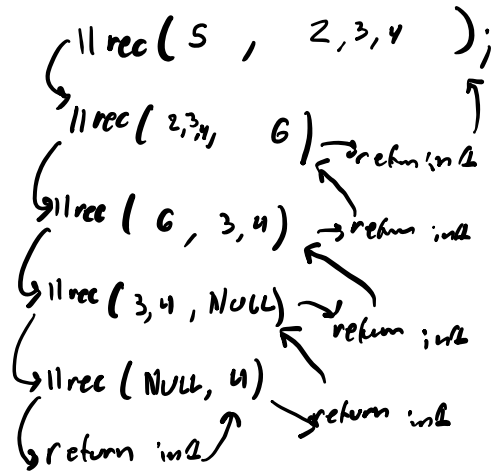 llrec( 5 , 2,3,4 );
llrec( 2,3,4, 6 ) return in1
llrec ( 6 , 3,4 ) return in1
llrec ( 3,4 , NULL ) return in1
llrec ( NULL, 4 ) return in1
return in1